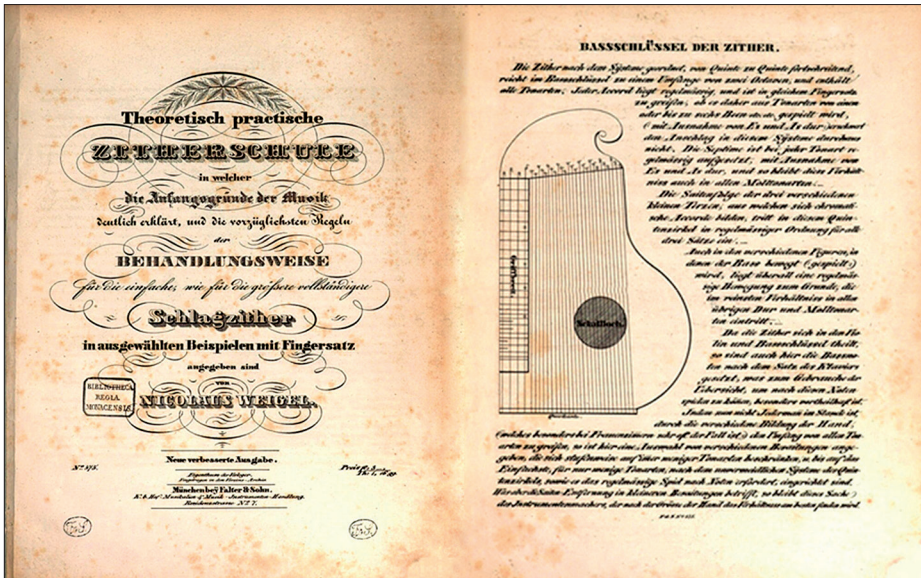 Theoretisch practische
ZITHERSCHULE
in welcher
die Anfangsgründe der Musik
deutlich erklärt, und die vorzüglichsten Regeln
der
BEHANDLUNGSWEISE
für die einfache, wie für die größere vollständigere
Schlagzither
in ausgewählten Beispielen mit Fingersatz
angegeben sind
von
NICOLAUS WEIGEL.
BIBLIOTHECA
REGIA
MONACENSIS
Neue verbesserte Ausgabe.
Eigenthum der Verleger.
München bey Falter & Sohn.
Residenzstrasse Nº 7.
BASSSCHLÜSSEL DER ZITHER.
Die Zither nach dem Systeme geordnet, von Quinte zu Quinte fortschreitend,
reicht im Bassschlüssel zu einem Umfange von zwei Octaven, und enthält
alle Tonarten; Jeder Accord liegt regelmässig, und ist in gleichem Fingersatz
zu greifen; ob es daher aus Tonarten von einem
oder bis zu sechs Been etc. etc. gespielt wird,
(mit Ausnahme von Es und As dur) erschwert
den Anschlag in diesem Systeme durchaus
nicht. Die Septime ist bei jeder Tonart re-
gelmässig aufgesetzt; mit Ausnahme von
Es und As dur, und so bleibt dies Verhält-
niss auch in allen Molltonarten.
Die Saitenfolge der drei verschiedenen
kleinen Terzen, aus welchen sich chromati-
sche Accorde bilden, tritt in diesem Quin-
tenzirkel in regelmässiger Ordnung für alle
drei Sätze ein.
Auch in den verschiedenen Figuren, in
denen der Bass bewegt (gespielt)
wird, liegt überall eine regelmäs-
sige Bewegung zum Grunde, die
im reinsten Verhältniss in allen
übrigen Dur und Molltonar-
ten eintritt.
Da die Zither sich in den Vio-
lin und Bassschlüssel theilt,
so sind auch hier die Bassno-
ten nach dem Satz des Klaviers
gesetzt, was zum Gebrauche der
Übersicht, um nach diesen Noten
spielen zu können, besonders vortheilhaft ist.
Indem nun nicht Jedermann im Stande ist,
durch die verschiedene Bildung der Hand,
(welches besonders bei Frauenzimmer sehr oft der Fall ist) den Umfang von allen Ton-
arten zu greifen, so ist hier eine Auswahl von verschiedenen Besaitungen ange-
geben, die sich stufenweise auf immer weniger Tonarten beschränken, u. bis auf das
Einfachste, für nur wenige Tonarten, nach dem unvermeidlichen Systeme des Quin-
tenzirkels, sowie es das regelmässige Spiel nach Noten erfordert, eingerichtet sind.
Was aber die Saiten Entfernung in kleineren Besaitungen betrifft, so bleibt dieses Sache
des Instrumentenmachers, der nach der Grösse der Hand das Verhältniss am besten finden wird.
Griffbrett
Schalloch.